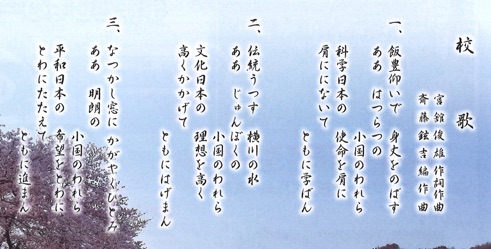 校歌
宮舘俊雄作詞作曲
斉藤鉉吉編作曲
一、飯豊仰いで　身丈をのばす
ああ　はつらつの　小国のわれら
科学日本の　使命を肩に
肩ににないて　ともに学ばん
二、伝統うつす　横川の水
ああ　じゅんぼくの　小国のわれら
文化日本の　理想を高く
高くかかげて　ともにはげまん
三、なつかし窓に　かがやくひとみ
ああ　明朗の　小国のわれら
平和日本の　希望をとわに
とわにたたえて　ともに進まん